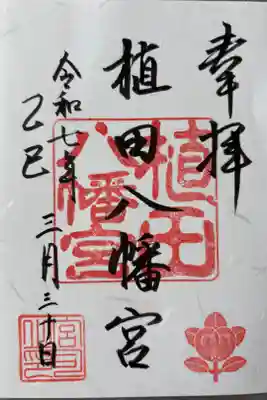 奉拝
植田八幡宮
植田
八幡宮
令和七年
乙巳
三月三十日